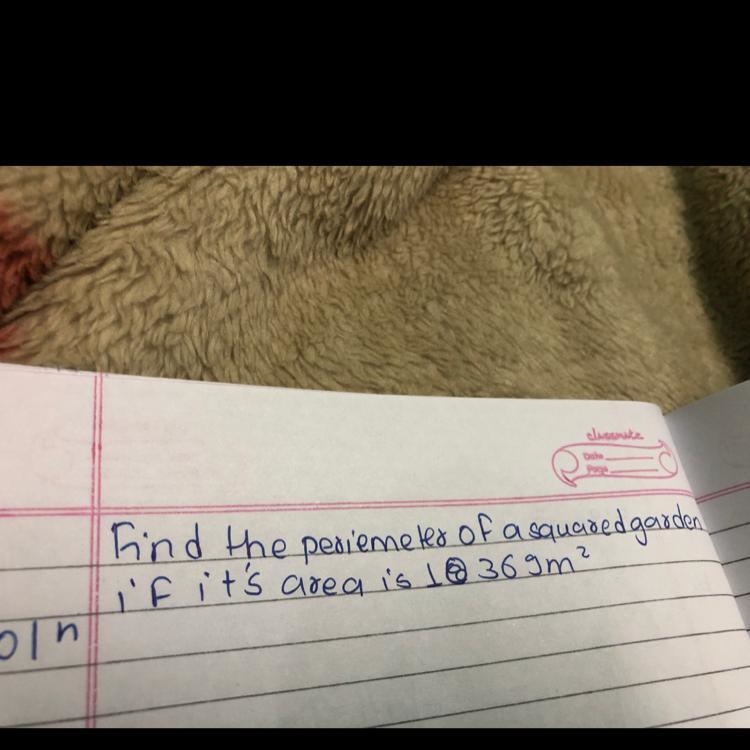 classmate
Date
Page
Find the periemeter of a squared garden
if it's area is 1 369m²
oln